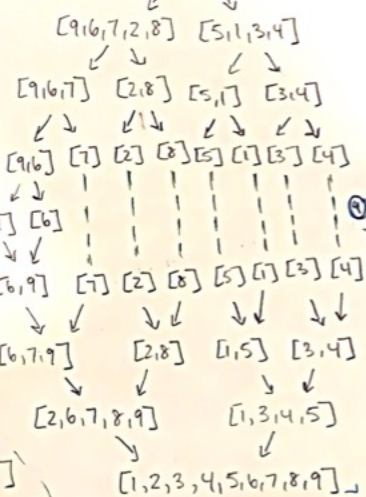 [9,6,7,2,8] [5,1,3,4]
[9,6,7] [2,8] [5,1] [3,4]
[9,6] [7] [2] [8] [5] [1] [3] [4]
] [6]
[6,9] [7] [2] [8] [5] [1] [3] [4]
[6,7,9] [2,8] [1,5] [3,4]
[2,6,7,8,9] [1,3,4,5]
[1,2,3,4,5,6,7,8,9]
]